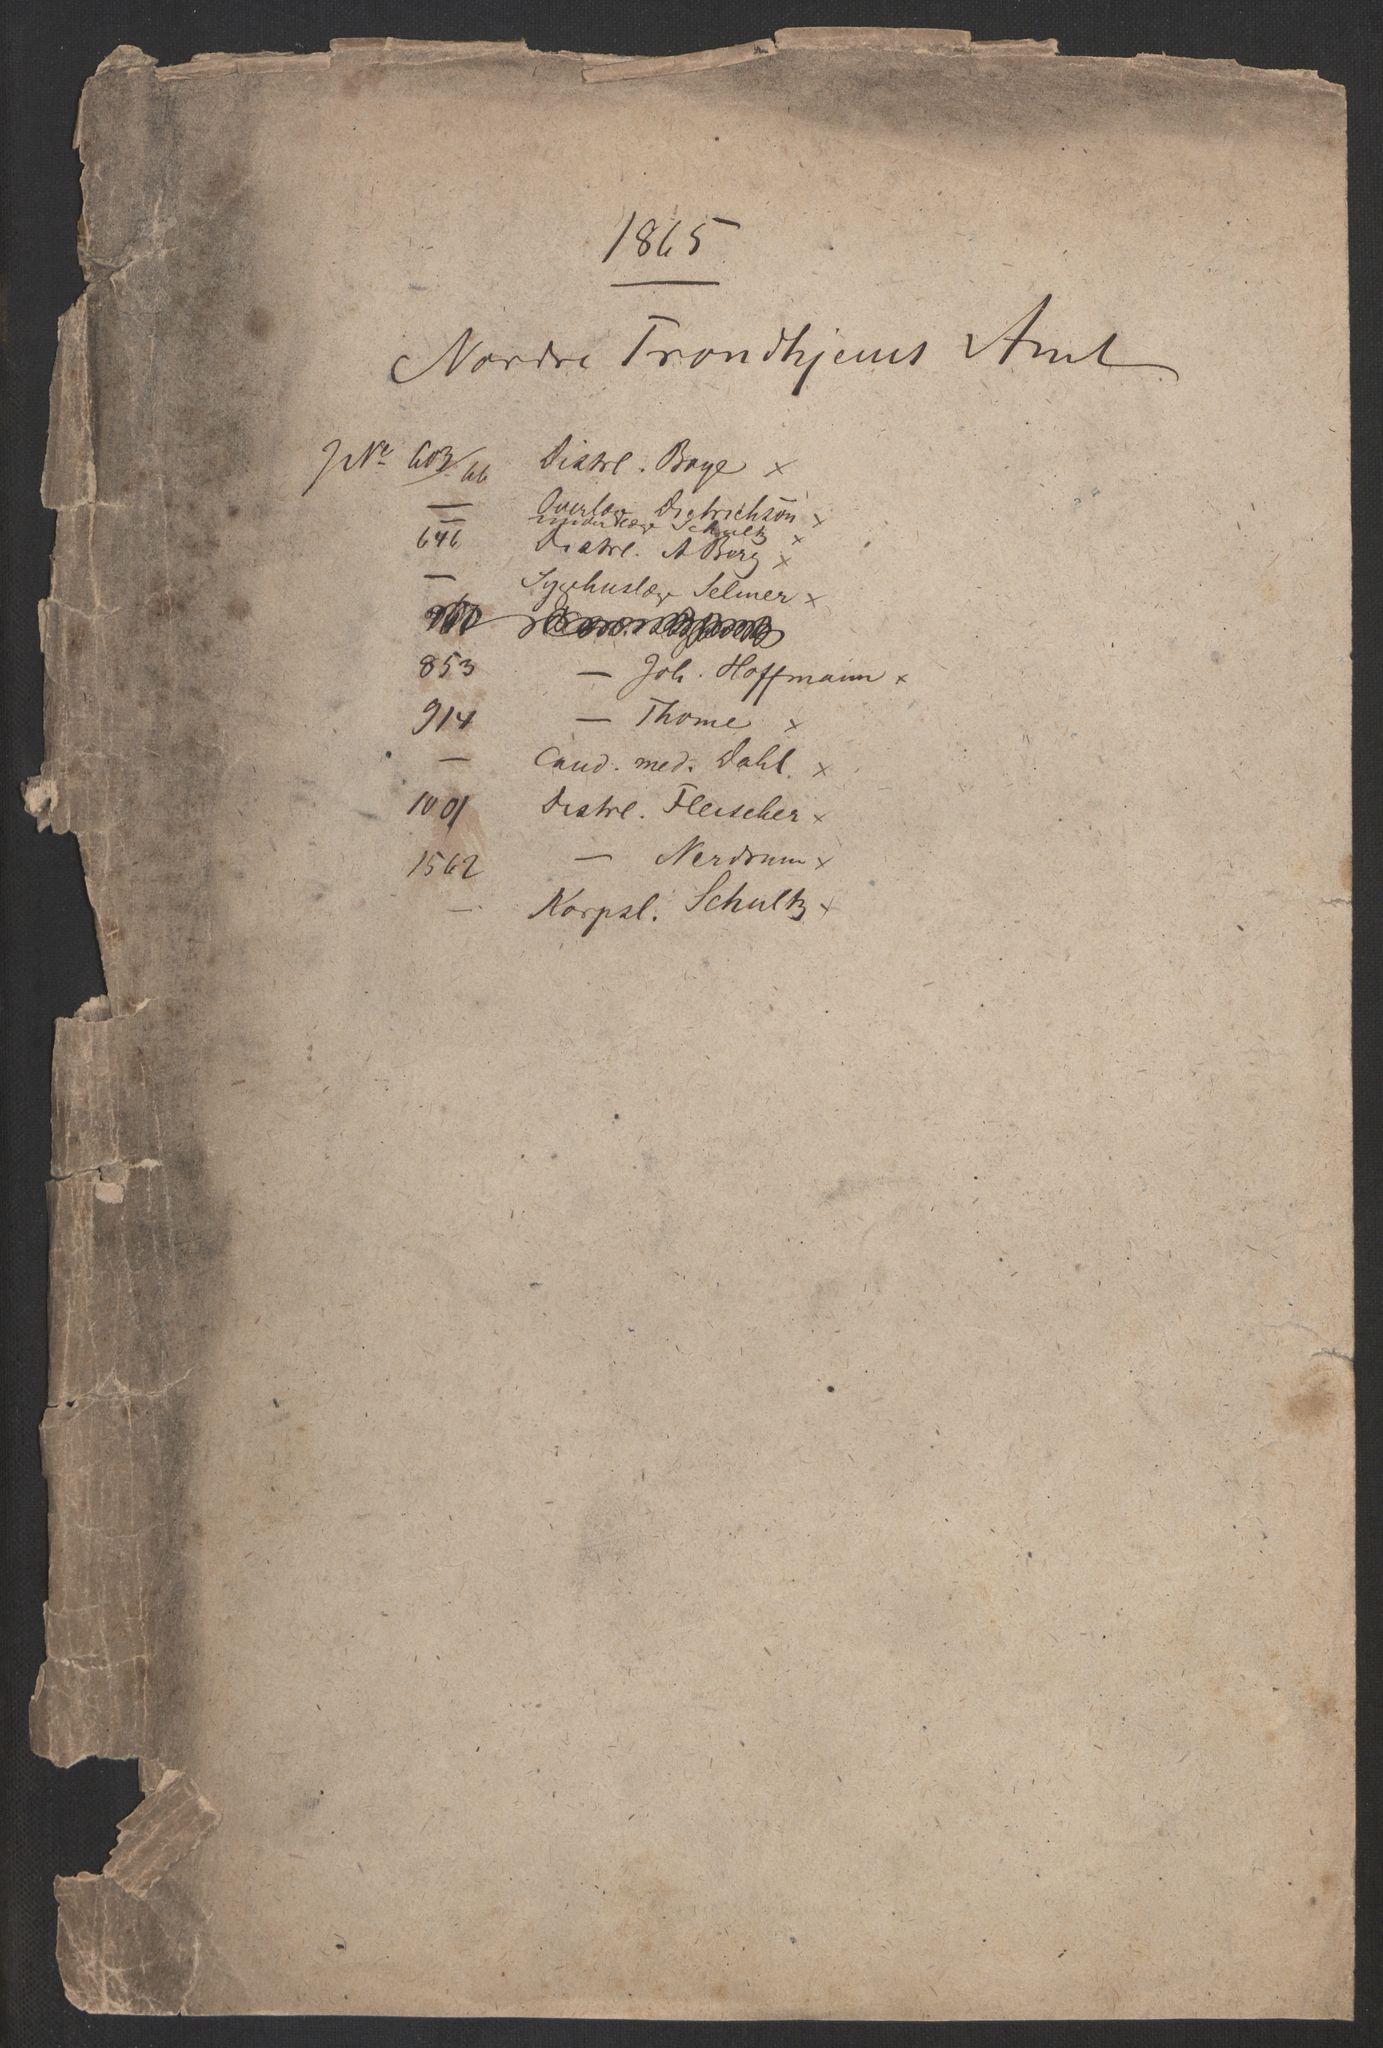 1865
Nordre Trondhjems Amt
JNr 603/66 Distrl. Boye x
— Overlæge Dietrichson x
— Underlæge Schultz x
646 Distrl. A Borg x
— Sygehuslæge Selmer x
853 — Joh. Hoffmann x
914 — Thome x
— Cand. med. Dahl. x
1001 Distrl. Fleischer x
1562 — Nerdrum x
— Korpsl. Schultz x